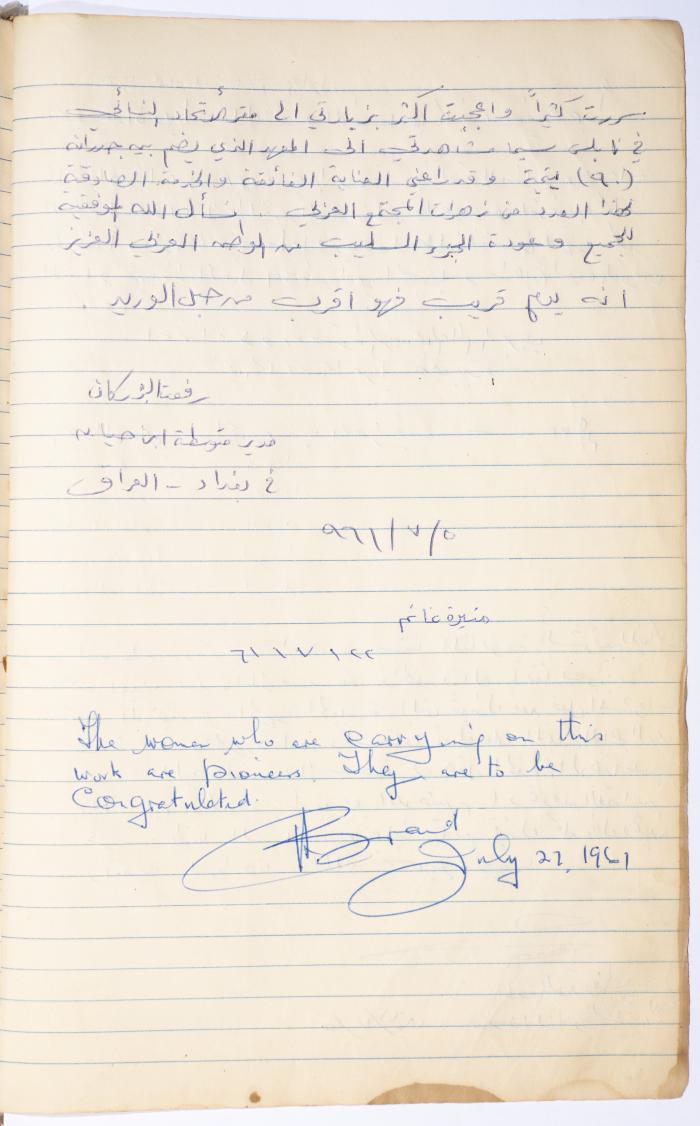 سررت كثيراً واعجبت اكثر بزيارتي الى مقر الأتحاد النسائي
في نابلس سيما مشاهدتي الى المعهد الذي يضم بين جدرانه
(٩٠) يتيمة وقد راعني العناية الفائقة والخدمة الصادقة
لهذا العدد من زهرات المجتمع العربي . نسأل الله الموفقية
للجميع وعودة الجزء السليب من الوطن العربي العزيز
انه يوم قريب فهو اقرب من حبل الوريد .
رفعت
مدير متوسطة ابن حيان
في بغداد - العراق
٩٦١/٧/٥
منيرة غانم
٦١ ١ ٧ ١ ٢٢
The women who are carrying on this
work are pioneers. They are to be
Congratulated.
Brand
July 27, 1961